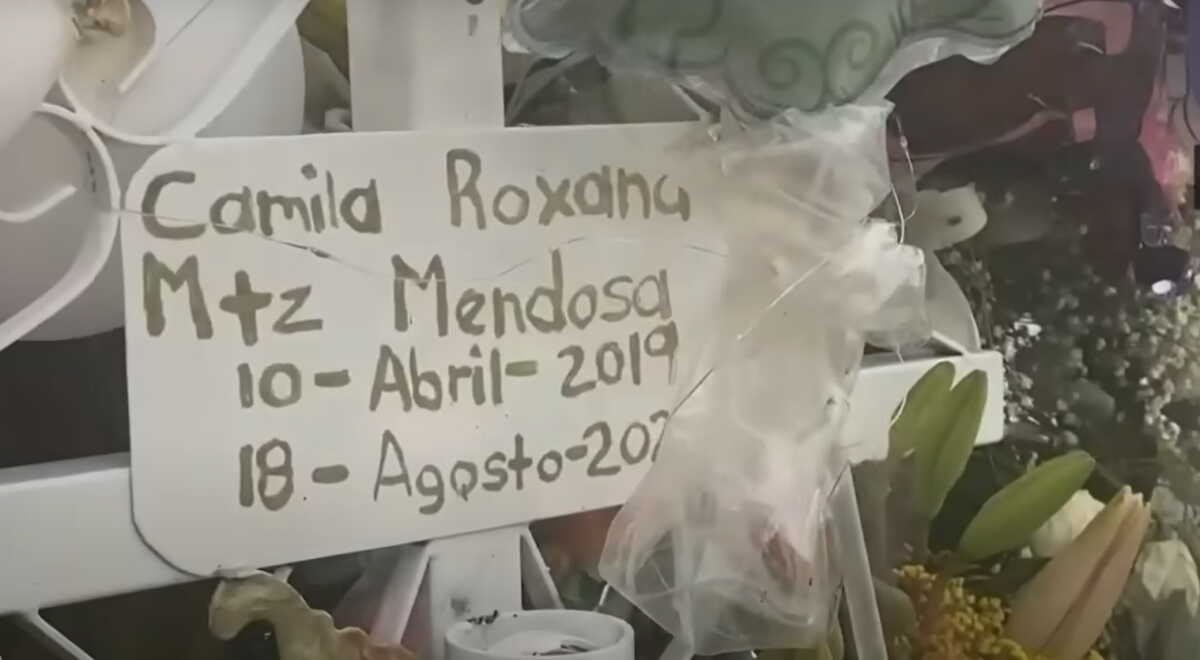 Camila Roxana
Mtz Mendosa
10 - Abril - 2019
18 - Agosto -